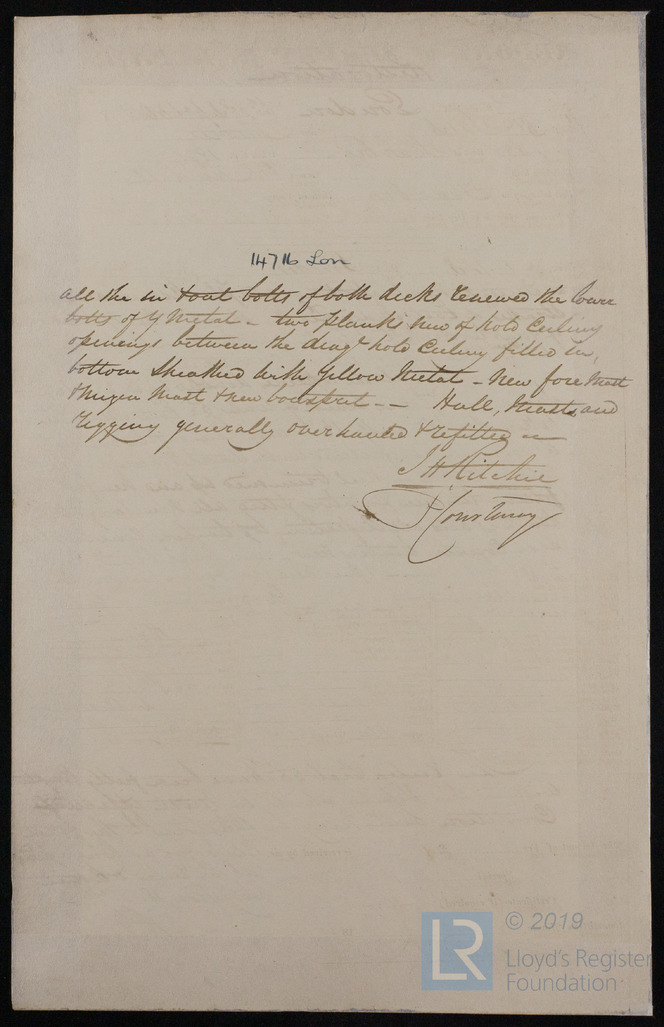 14716 Lon
all the in & out bolts of both decks renewed the lower
bolts of Y Metal - two planks new of hold Ceiling
openings between the diagl hold Ceiling filled in,
bottom Sheathed with Yellow Metal - New fore Mast
& Mizen Mast & new bowsprit - - Hull, Masts, and
Rigging generally overhauled & refitted -
J H Ritchie
Courtenay
© 2019
LR
Lloyd's Register
Foundation